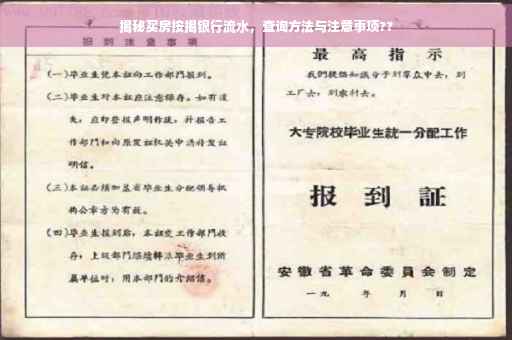 揭秘买房按揭银行流水，查询方法与注意事项??
报到注意事项
(一)毕业生凭本証向工作部門报到。
(二)毕业生对本証应注意保存。如有遺
失，应即登报声明作廢，并报告工
作部門和向原发証机关申請补发証
明信。
(三)本証必須加盖省毕业生分配領导机
构公章方为有效。
(四)毕业生报到后，本証交工作部門收
存；上級部門繼續轉派毕业生到所
属单位时，用本部門的介紹信。
最高指示
我們提倡知識分子到羣众中去，到
工厂去，到农村去。
大专院校毕业生統一分配工作
报到証
安徽省革命委員会制定
一九 年 月 日